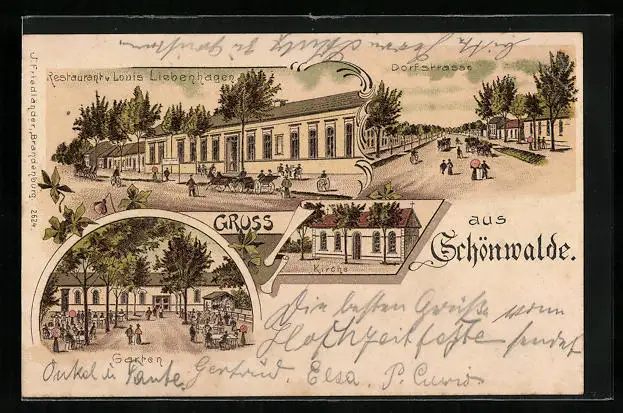 Restaurant v. Louis Liebenhagen
Dorfstrasse
J. Friedländer, Brandenburg. 2624.
GRUSS
aus
Schönwalde.
Kirche
Garten
Die besten Grüße vom
Hochzeitsfeste sendet
Onkel u Tante. Gertrud. Elsa. P.